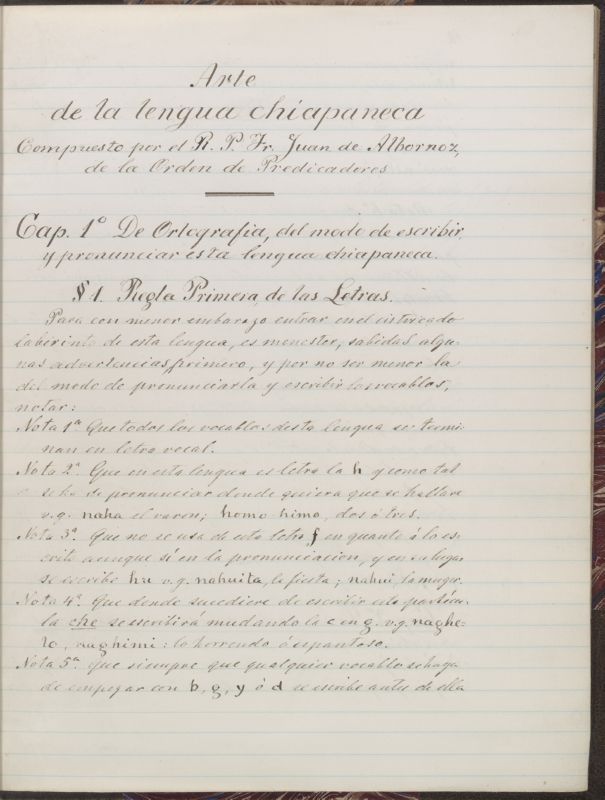 Arte
de la lengua chiapaneca
Compuesto por el R. P. Fr. Juan de Albornoz,
de la Orden de Predicadores
Cap. 1º De Ortografia, del modo de escribir,
y pronunciar esta lengua chiapaneca.
§ 1. Regla Primera, de las Letras.
Para con menor embarazo entrar en el intricado
laberinto de esta lengua, es menester, sabidas algu-
nas advertencias primero, y por no ser menor la
del modo de pronunciarla y escribir los vocablos,
notar:
Nota 1ª Que todos los vocablos desta lengua se termi-
nan en letra vocal.
Nota 2ª. Que en esta lengua es letra la h y como tal
se ha de pronunciar donde quiera que se hallare
v.g. naha el varon; homo himo, dos ó tres.
Nota 3ª. Que no se usa de esta letra f en quanto á lo es-
crito aunque sí en la pronunciacion, y en su lugar
se escribe hu v.g. nahuita, la fiesta; nahui, la muger.
Nota 4ª. Que donde sucediere de escribir esta partícu-
la che se escribirá mudando la c en g. v.g. naghe-
lo, naghimi: lo horrendo ó espantoso.
Nota 5ª. que siempre que qualquier vocablo se haya
de empezar con b, g, y ó d se escribe antes de ella